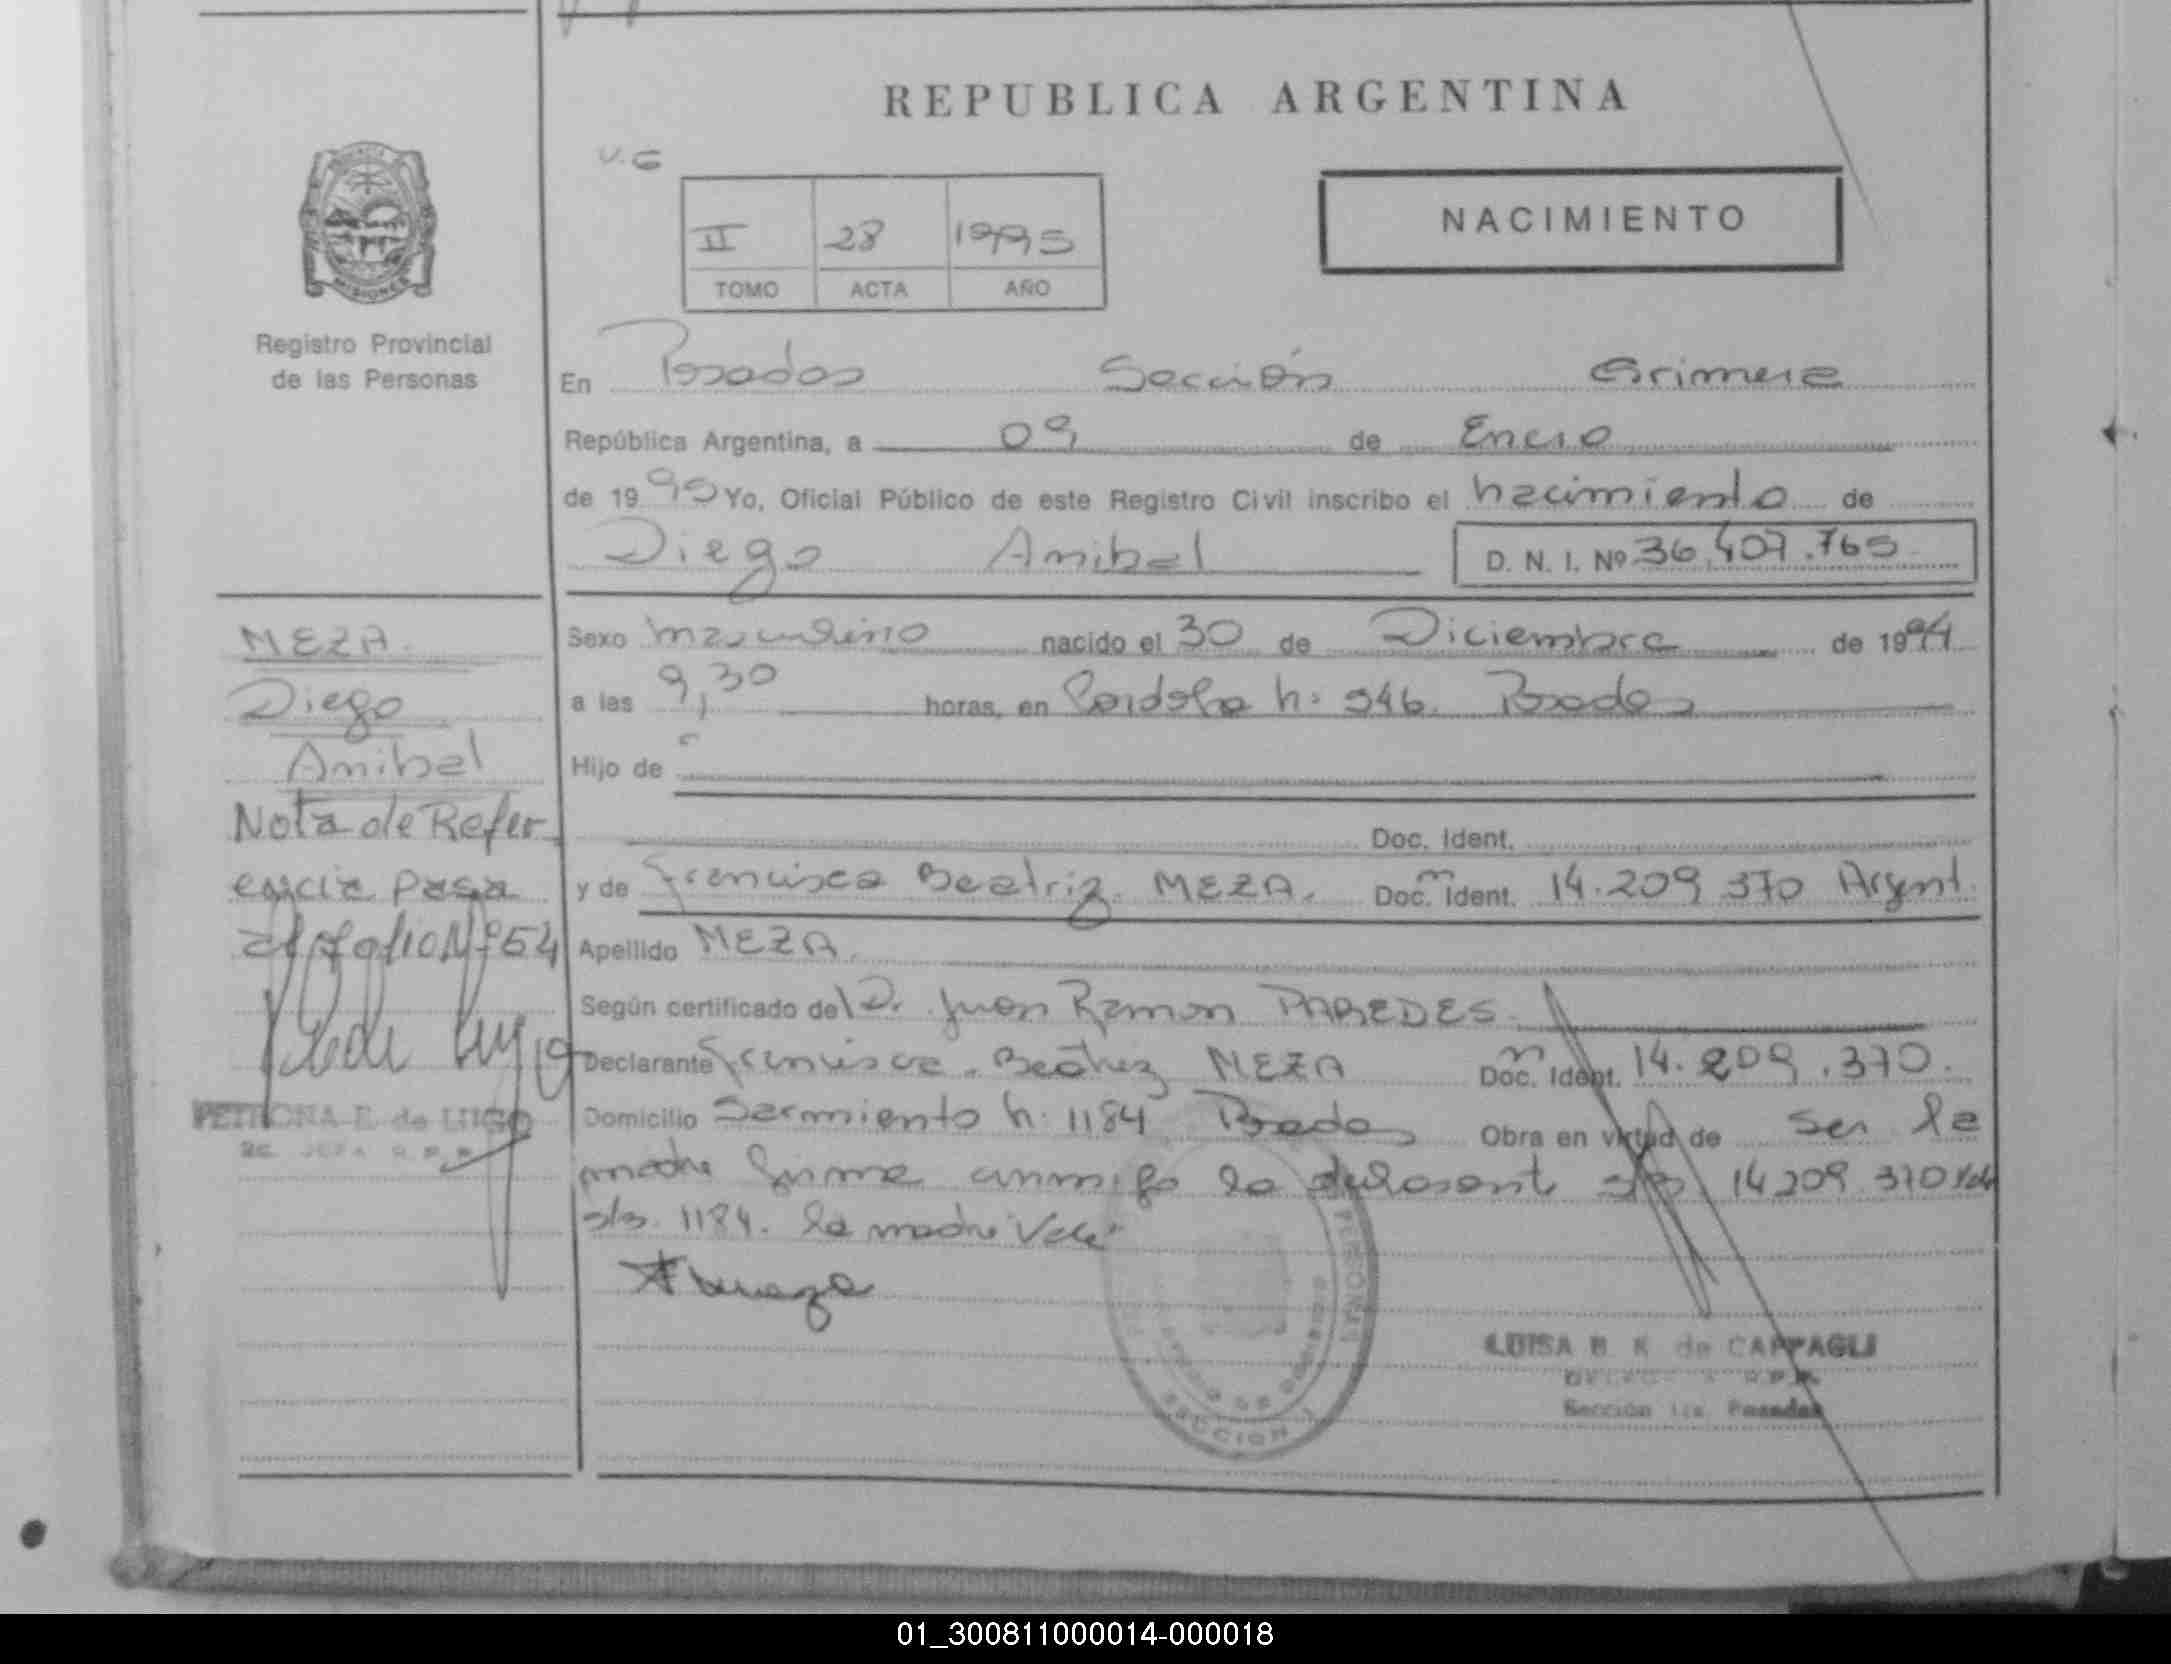 REPUBLICA ARGENTINA
V.G
II 28 1995
TOMO ACTA AÑO
NACIMIENTO
PROVINCIA
MISIONES
Registro Provincial
de las Personas
En Posadas Sección Primera
República Argentina, a 09 de Enero
de 1995 Yo, Oficial Público de este Registro Civil inscribo el nacimiento de
Diego Anibal D. N. I. Nº 36.407.765
MEZA.
Diego
Anibal
Nota de Refer-
encia pasa
al folio Nº 54
PETRONA E. de LUGO
JEFA R.P.P.
Sexo masculino nacido el 30 de Diciembre de 1994
a las 9,30 horas, en Cordoba n: 946. Posadas
Hijo de
Doc. Ident.
y de Francisca Beatriz MEZA. Doc. Ident. 14.209.370 Argent.
Apellido MEZA.
Según certificado del Dr. Juan Ramon PAREDES.
Declarante Francisca Beatriz MEZA Doc. Ident. 14.209.370.
Domicilio Sarmiento n: 1184 Posadas Obra en virtud de ser la
madre firma conmigo la declarante s/b 14.209.370 Vale
s/b. 1184. la madre Vale
LUISA B. K. de CAPPAGLI
R.P.P.
Sección 1ra. Posadas
PERSONAS
SECCION 1
01_300811000014-000018